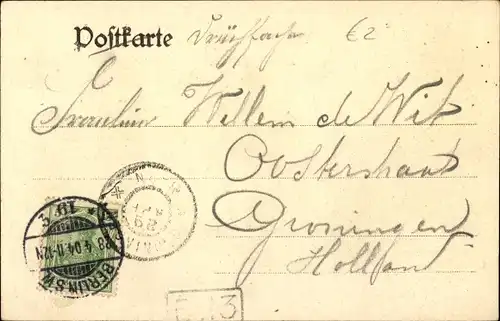 Postkarte Drucksache €2
Fräulein Willem de Wit
Oosterstraat
Groningen
Holland
BERLIN S.W.
28 4 04 11-12N